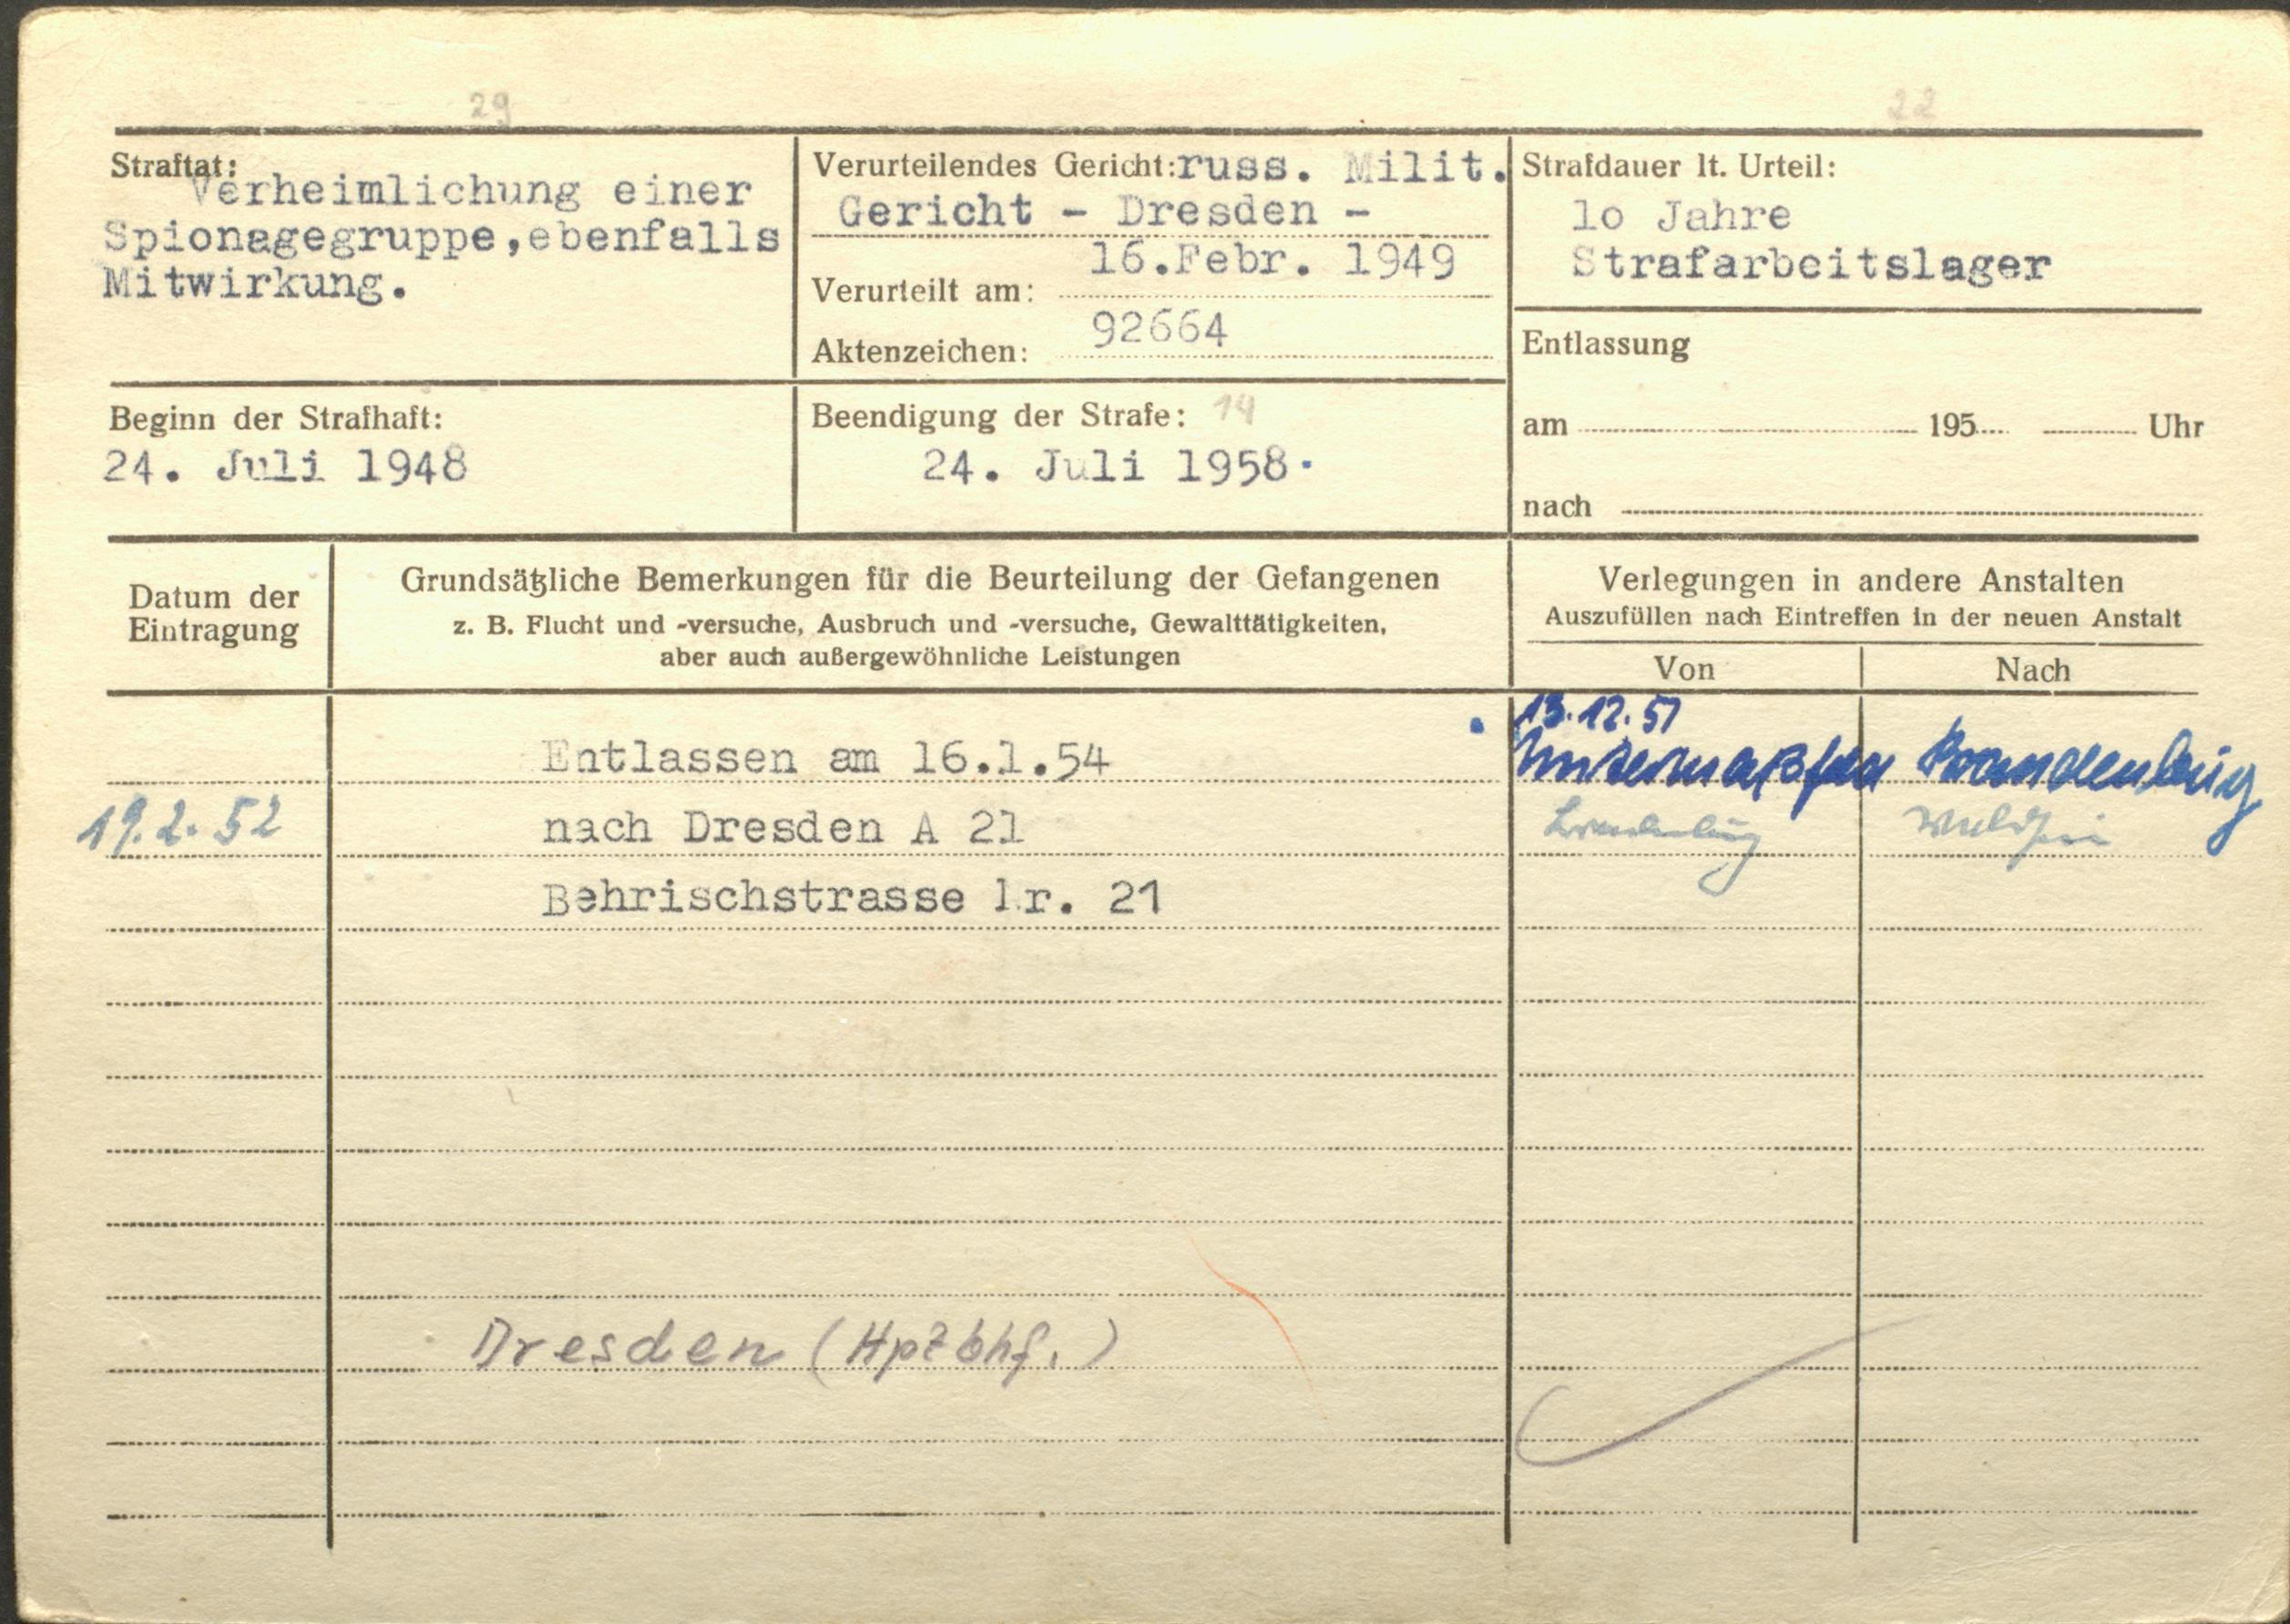 29
22
Straftat:
Verheimlichung einer
Spionagegruppe,ebenfalls
Mitwirkung.
Verurteilendes Gericht: russ. Milit.
Gericht - Dresden -
Verurteilt am: 16.Febr. 1949
Aktenzeichen: 92664
Strafdauer lt. Urteil:
lo Jahre
Strafarbeitslager
Entlassung
am 195 Uhr
nach
Beginn der Strafhaft:
24. Juli 1948
Beendigung der Strafe: 14
24. Juli 1958.
Datum der
Eintragung
Grundsätzliche Bemerkungen für die Beurteilung der Gefangenen
z. B. Flucht und -versuche, Ausbruch und -versuche, Gewalttätigkeiten,
aber auch außergewöhnliche Leistungen
Verlegungen in andere Anstalten
Auszufüllen nach Eintreffen in der neuen Anstalt
Von Nach
13.12.51
Entlassen am 16.1.54
Untermaßfeld Brandenburg
19.2.52 nach Dresden A 21 Brandenburg
Behrischstrasse Nr. 21
Dresden (Hptbhf.)